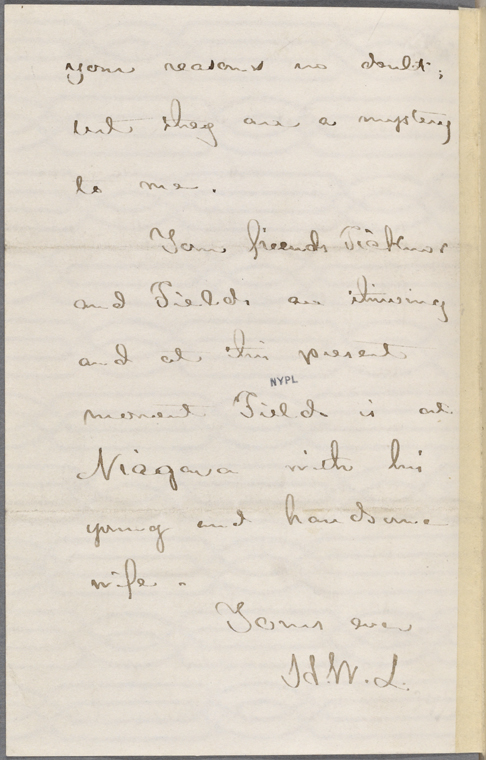 your reasons no doubt;
but they are a mystery
to me.
Your friends Ticknor
and Fields are thriving
and at this present
NYPL
moment Fields is at
Niagara with his
young and handsome
wife.
Yours ever
H.W.L.